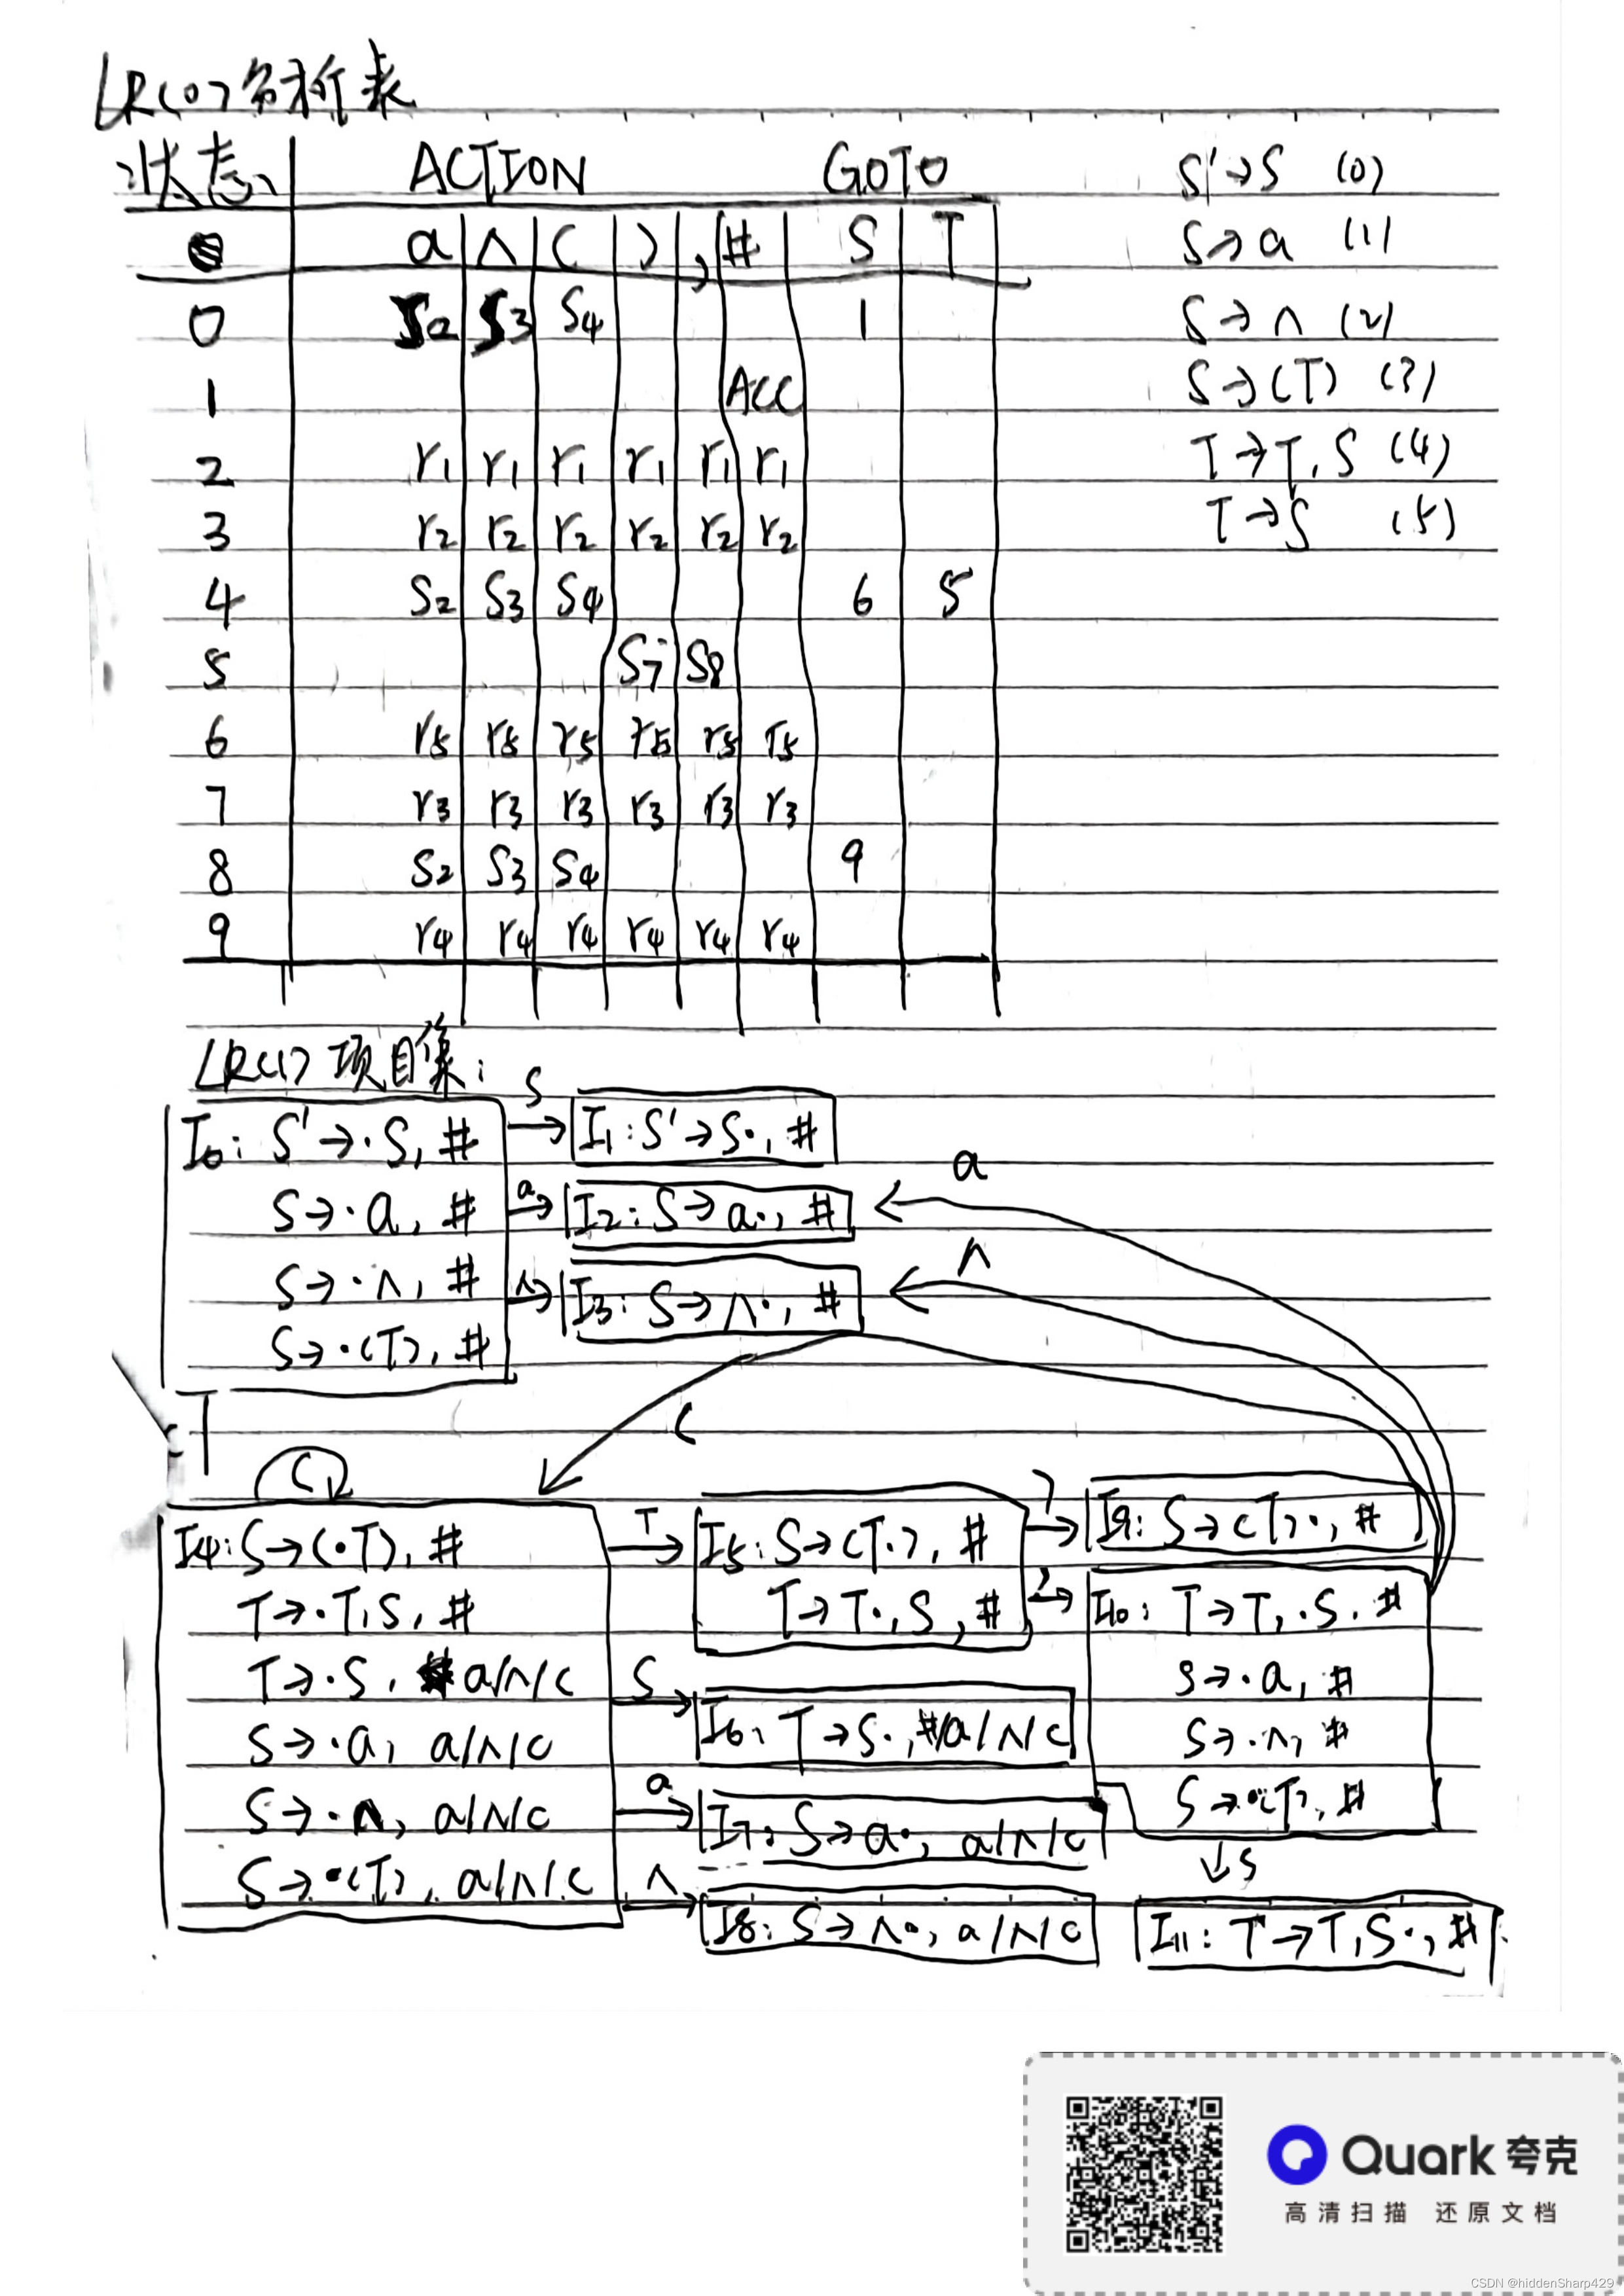 LR(0)分析表
状态 ACTION GOTO
a ∧ ( ) , # S T
0 S2 S3 S4 1
1 ACC
2 r1 r1 r1 r1 r1 r1
3 r2 r2 r2 r2 r2 r2
4 S2 S3 S4 6 5
5 S7 S8
6 r5 r5 r5 r5 r5 r5
7 r3 r3 r3 r3 r3 r3
8 S2 S3 S4 9
9 r4 r4 r4 r4 r4 r4
S'→S (0)
S→a (1)
S→∧ (2)
S→(T) (3)
T→T,S (4)
T→S (5)
LR(1)项目集:
I0: S'→·S, #
S→·a, #
S→·∧, #
S→·(T), #
S
I1: S'→S·, #
a
I2: S→a·, #
∧
I3: S→∧·, #
a
∧
(
(
I4: S→(·T), #
T→·T,S, #
T→·S, a/∧/(
S→·a, a/∧/(
S→·∧, a/∧/(
S→·(T), a/∧/(
T
I5: S→(T·), #
T→T·,S, #
S
I6: T→S·, #/a/∧/(
a
I7: S→a·, a/∧/(
∧
I8: S→∧·, a/∧/(
)
I9: S→(T)·, #
,
I10: T→T,·S, #
S→·a, #
S→·∧, #
S→·(T), #
S
I11: T→T,S·, #
Quark 夸克
高清扫描 还原文档
CSDN @hiddenSharp429